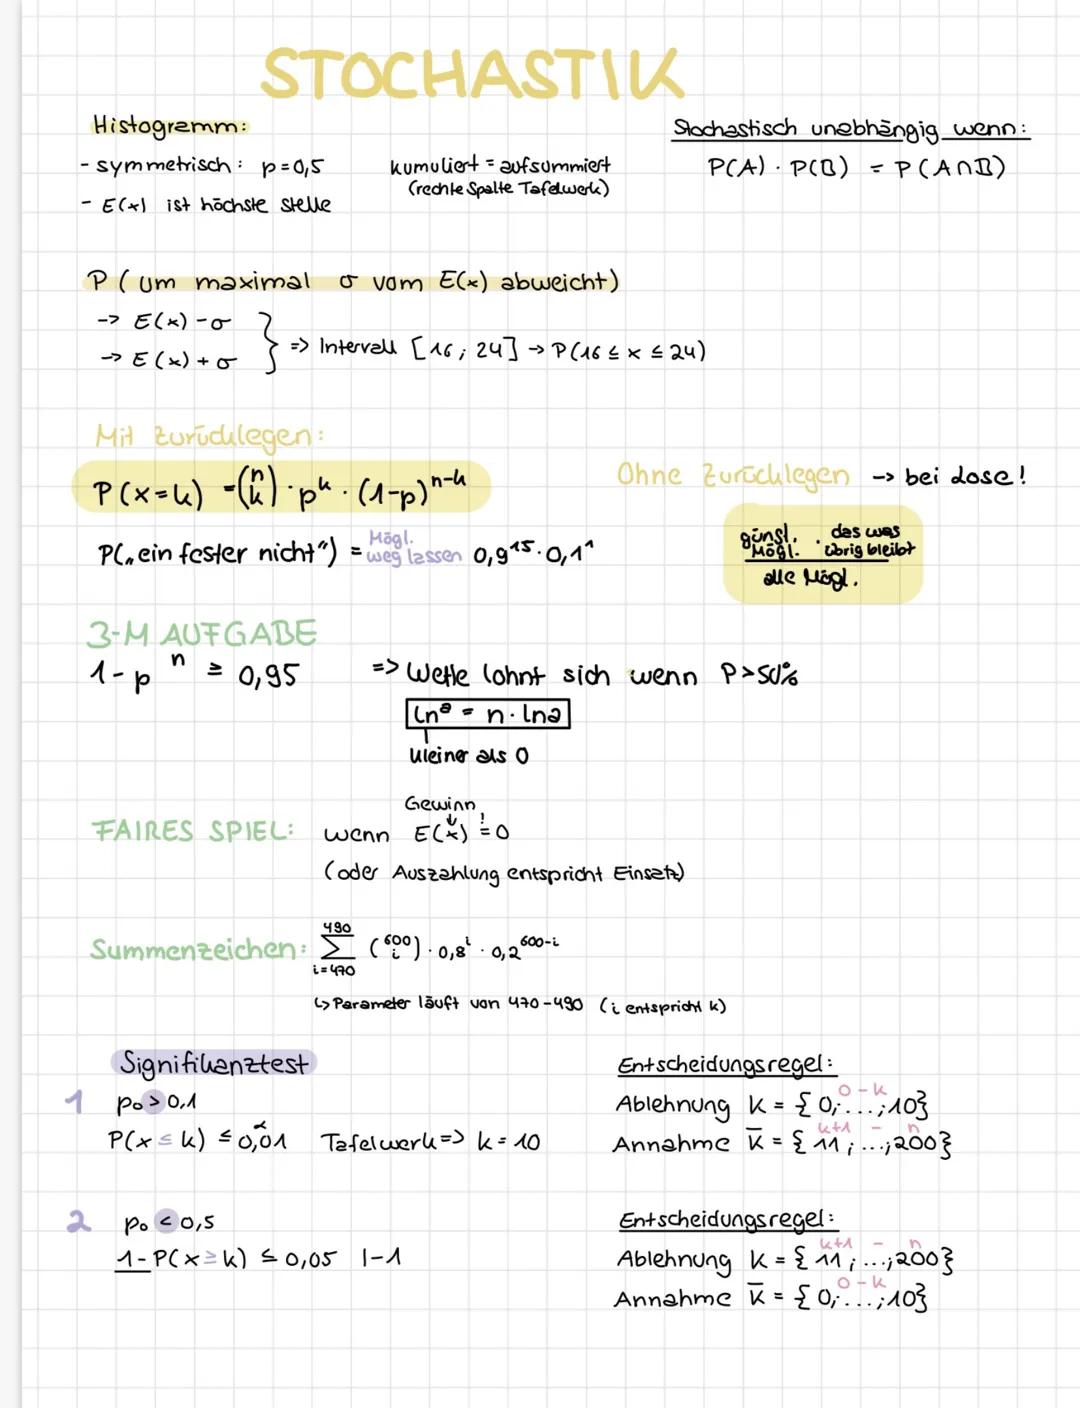 STOCHASTIK
Histogramm:
- symmetrisch: p=0,5
- E(x) ist höchste stelle
kumuliert = aufsummiert
(rechte Spalte Tafelwerk)
Stochastisch unabhängig wenn:
P(A) · P(B) = P(A∩B)
P ( um maximal σ vom E(x) abweicht)
-> E(x) - σ
-> E(x) + σ
=> Intervall [16; 24] -> P(16 ≤ x ≤ 24)
Mit Zurücklegen:
P(x=k) = (n k) · p^k · (1-p)^n-k
P(„ein fester nicht") = Mögl. weg lassen 0,9^15 · 0,1^1
Ohne Zurücklegen -> bei Lose!
günst. Mögl. · das was übrig bleibt
alle Mögl.
3-M AUFGABE
1-p^n ≥ 0,95 => Wette lohnt sich wenn P>50%
ln^a = n · lna
kleiner als 0
Gewinn
FAIRES SPIEL: wenn E(x) != 0
(oder Auszahlung entspricht Einsatz)
490
Summenzeichen: Σ (600 i) · 0,8^i · 0,2^600-i
i=470
↳ Parameter läuft von 470-490 (i entspricht k)
Signifikanztest
1 p₀ > 0,1
P(x ≤ k) ≤ 0,01 Tafelwerk => k = 10
α
Entscheidungsregel:
0 - k
Ablehnung K = { 0;...;10}
k+1 - n
Annahme K̅ = { 11; ...;200}
2 p₀ < 0,5
1-P(x≥k) ≤ 0,05 |-1
Entscheidungsregel:
k+1 - n
Ablehnung K = { 11; ...;200}
0 - k
Annahme K̅ = { 0;...;10}